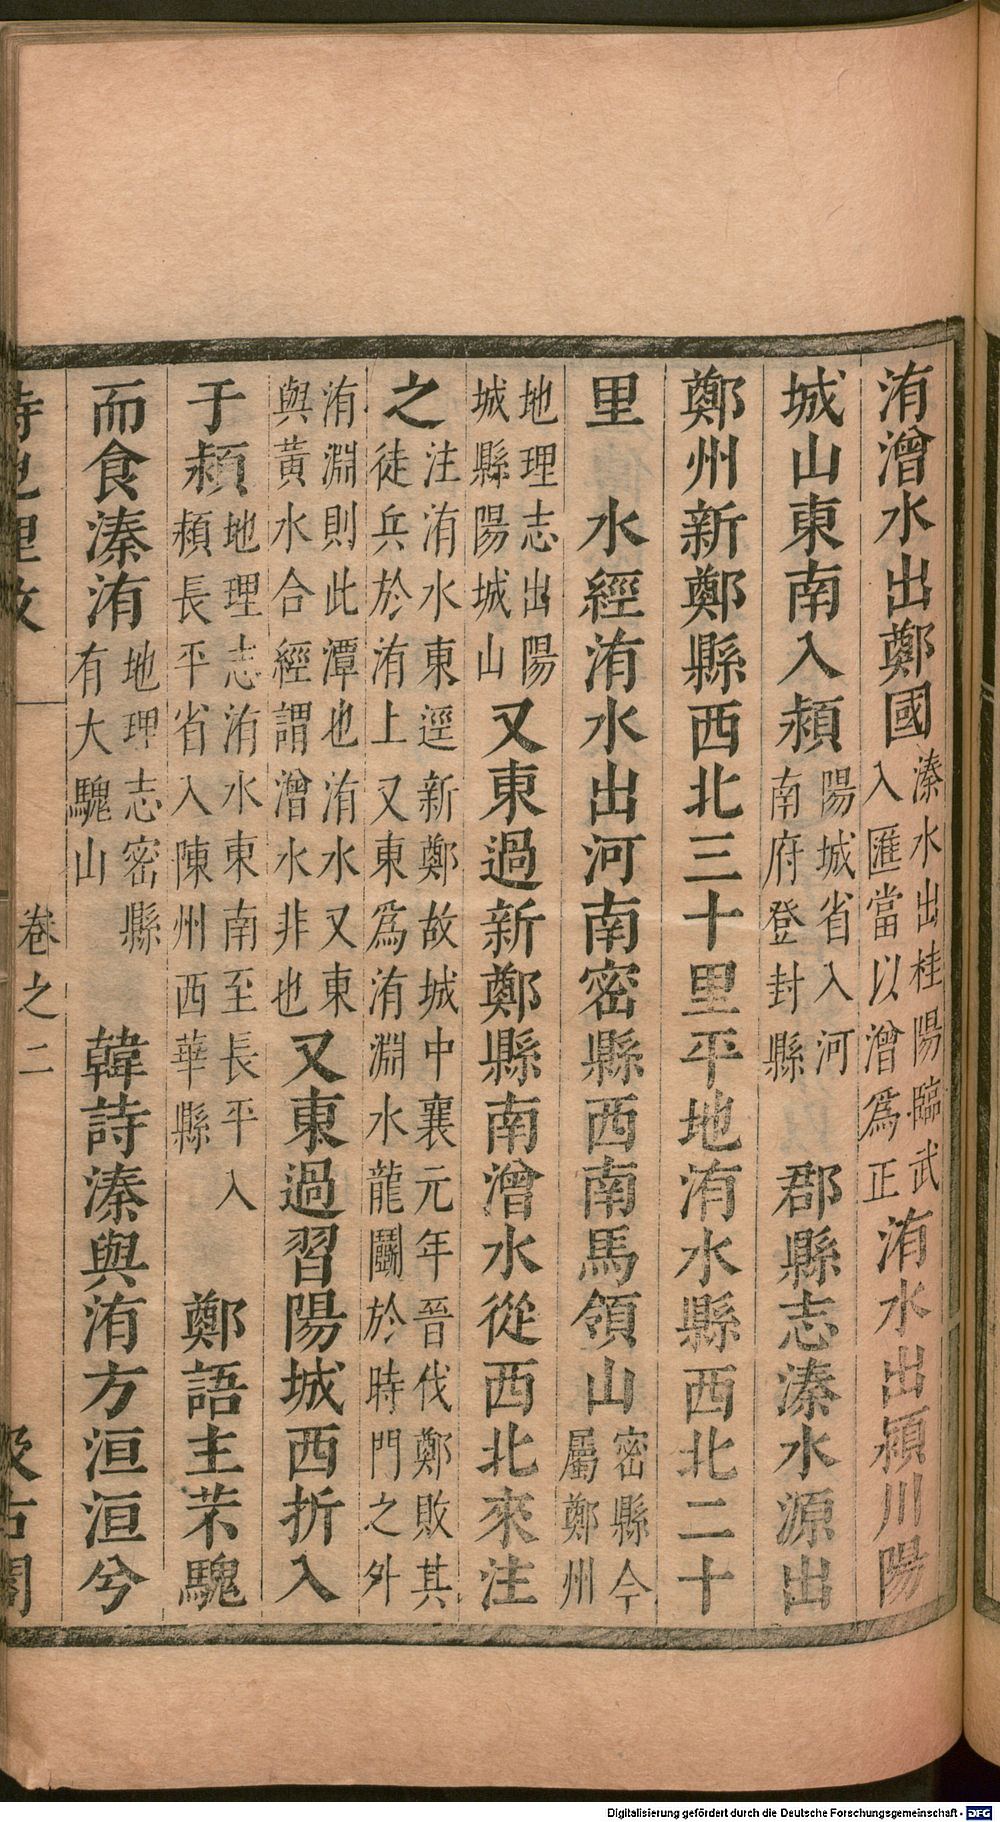 洧潧水出鄭國溱水出桂陽臨武入匯當以潧爲正洧水出潁川陽
城山東南入潁陽城省入河南府登封縣　郡縣志溱水源出
鄭州新鄭縣西北三十里平地洧水縣西北二十
里　水經洧水出河南密縣西南馬領山密縣今屬鄭州
地理志出陽城縣陽城山又東過新鄭縣南潧水從西北來注
之注洧水東逕新鄭故城中襄元年晉伐鄭敗其徒兵於洧上又東爲洧淵水龍鬭於時門之外
洧淵則此潭也洧水又東與黃水合經謂潧水非也又東過習陽城西折入
于潁地理志洧水東南至長平入潁長平省入陳州西華縣　鄭語主芣騩
而食溱洧地理志密縣有大騩山　韓詩溱與洧方洹洹兮
詩地理攷　卷之二　汲古閣
Digitalisierung gefördert durch die Deutsche Forschungsgemeinschaft - DFG